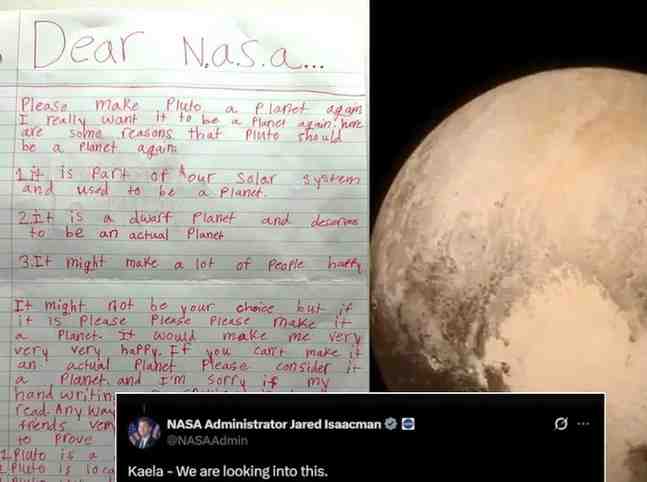 Dear N.a.s.a...
Please make Pluto a Planet again
I really want it to be a Planet again. here
are some reasons that Pluto should
be a Planet again.
1.it is part of our solar system
and used to be a Planet.
2.It is a dwarf Planet and deserves
to be an actual Planet
3.It might make a lot of people happy
It might not be your choice but if
it is Please Please Please make it
a Planet. It would make me very
very very happy. If you can't make it
an actual Planet Please consider it
a Planet. and I'm sorry if my
hand writin
read. Any way
friends
to prove
1.Pluto is a
2.Pluto is loca
NASA Administrator Jared Isaacman
@NASAAdmin
Kaela - We are looking into this.